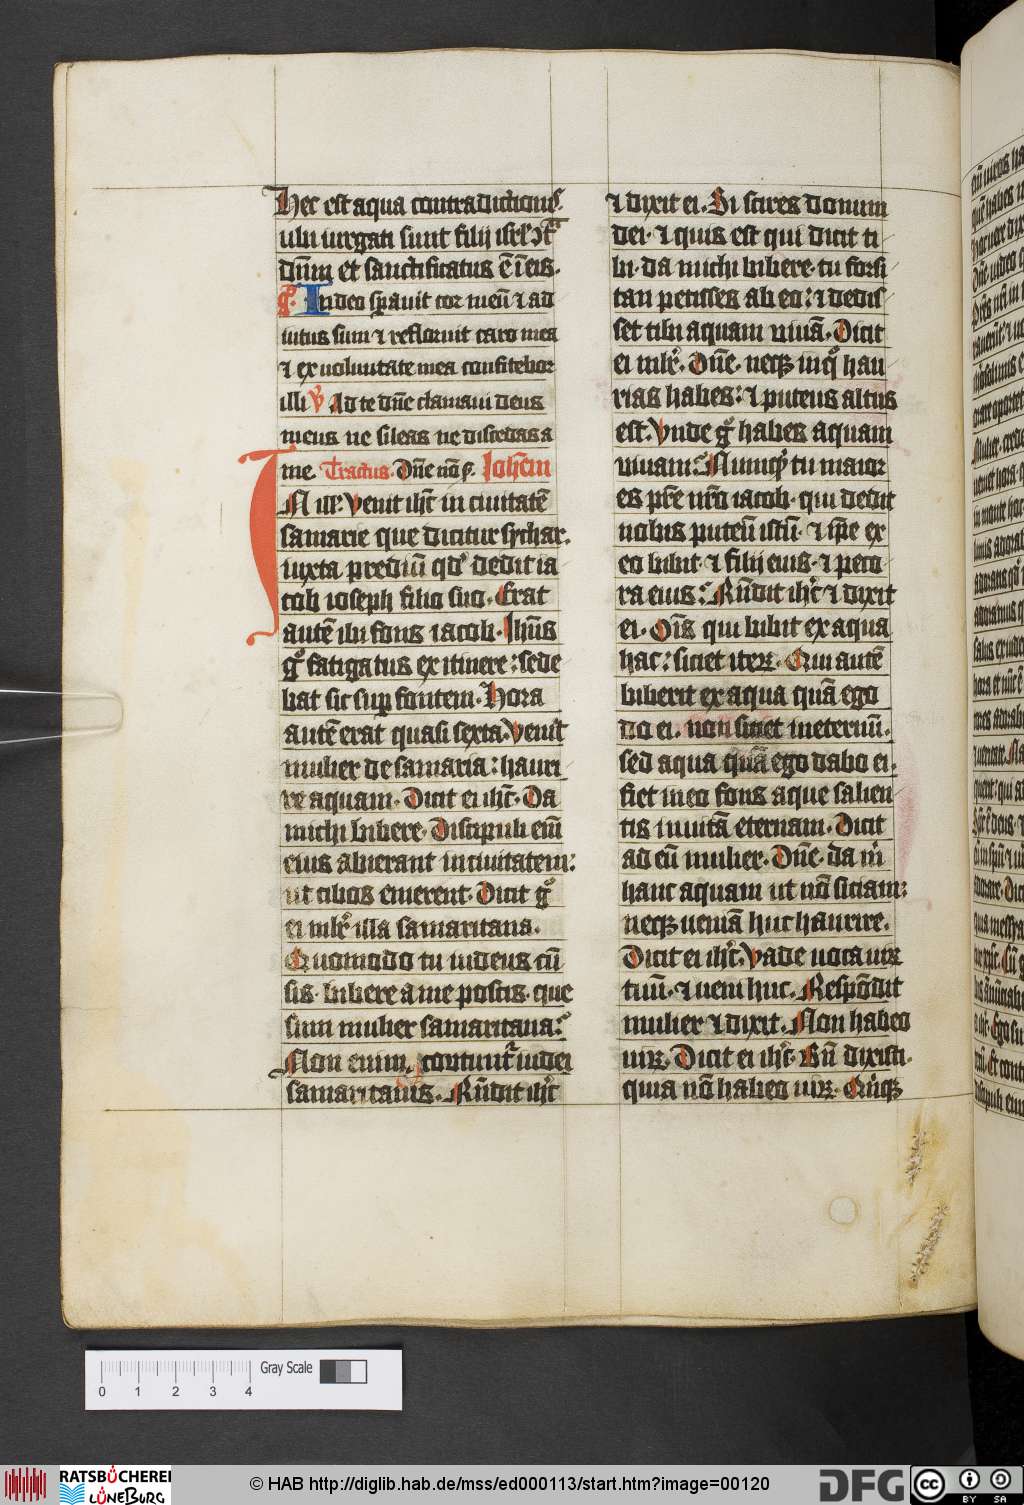 Hec est aqua contradictionis.
ubi iurgati sunt filij isrl' ɔt̄
dn̄m et sanctificatus ē ī eis.
gͦ. In deo sp̱auit cor meū ⁊ ad
iutus sum ⁊ refloruit caro mea
⁊ ex uoluntate mea confitebor
illi ℣ Ad te dn̄e clamaui deus
meus ne sileas ne discedas a
me. Tractus. Dn̄e nō s. Joħem
IN ill'. Venit ihc̄ in ciuitatē
samarie que dicitur sychar.
iuxta prediū qd' dedit ia
cob ioseph filio suo. Erat
autē ibi fons iacob. Jhūs
gͦ fatigatus ex itinere: sede
bat sic sup̱ fontem. Hora
autē erat quasi sexta. Venit
mulier de samaria: hauri
re aquam. Dicit ei ihc̄. Da
michi bibere. Discipuli em̄
eius abierant in ciuitatem:
ut cibos emerent. Dicit gͦ
ei mlr̄ illa samaritana.
Quomodo tu iudeus cū
sis. bibere a me poscis. que
sum mulier samaritana:
Non enim coutunt̄ iudei
samaritanis. Rn̄dit ihc̄
⁊ dixit ei. Si scires donum
dei. ⁊ quis est qui dicit ti
bi. da michi bibere. tu forsi
tan petisses ab eo: ⁊ dedis
set tibi aquam uiuā. Dicit
ei mlr̄. Dn̄e. neqꝫ in qͦ hau
rias habes: ⁊ puteus altus
est. Vnde gͦ habes aquam
uiuam: Numqͥd tu maior
es pr̄e nr̄o iacob. qui dedit
nobis puteū istū. ⁊ ip̄e ex
eo bibit. ⁊ filij eius. ⁊ peco
ra eius: Rn̄dit ihc̄ ⁊ dixit
ei. Om̄s qui bibit ex aqua
hac: siciet iterꝝ. Qui autē
biberit ex aqua quā ego
do ei. non siciet in eternū.
sed aqua quā ego dabo ei.
fiet in eo fons aque salien
tis in uitā eternam. Dicit
ad eū mulier. Dn̄e. da m̄
hanc aquam ut nō siciam:
neqꝫ ueniā huc haurire.
Dicit ei ihc̄. Vade uoca uiꝝ
tuū. ⁊ ueni huc. Respōdit
mulier ⁊ dixit. Non habeo
uiꝝ. Dicit ei ihc̄. Bn̄ dixisti.
quia nō habeo uiꝝ. Qͥnqꝫ
Gray Scale
0 1 2 3 4
RATSBÜCHEREI
LÜNEBURG
© HAB http://diglib.hab.de/mss/ed000113/start.htm?image=00120
DFG
cc BY SA